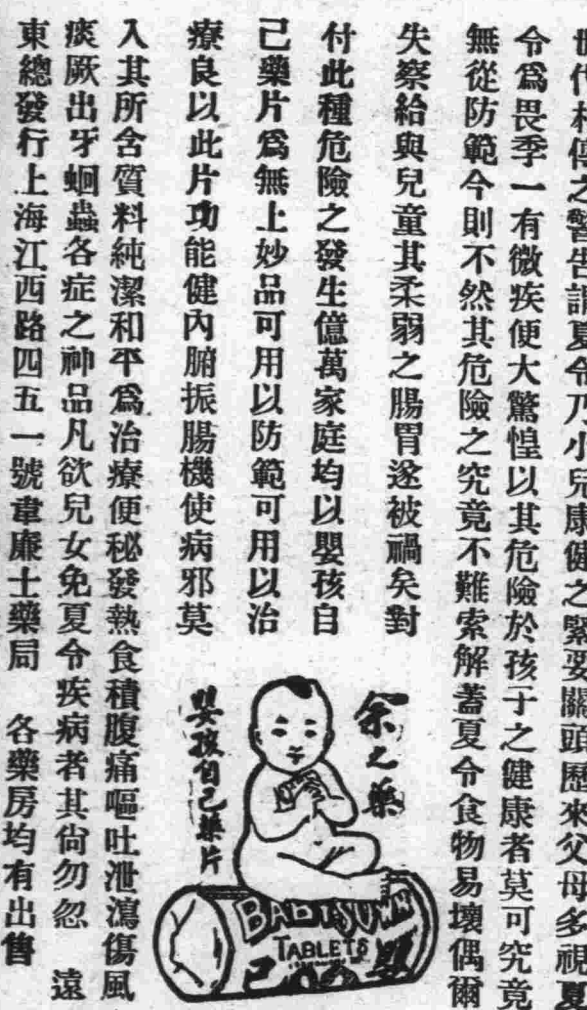 世代相傳之警告謂夏令乃小兒康健之緊要關頭歷來父母多視夏
令爲畏季一有微疾便大驚惶以其危險於孩子之健康者莫可究竟
無從防範今則不然其危險之究竟不難索解蓋夏令食物易壞偶爾
失察給與兒童其柔弱之腸胃遂被禍矣對
付此種危險之發生億萬家庭均以嬰孩自
己藥片爲無上妙品可用以防範可用以治
療良以此片功能健內腑振腸機使病邪莫
入其所含質料純潔和平爲治療便秘發熱食積腹痛嘔吐泄瀉傷風
痰厥出牙蛔蟲各症之神品凡欲兒女免夏令疾病者其尙勿忽 遠
東總發行上海江西路四五一號韋廉士藥局 各藥房均有出售
余之藥
嬰孩自己藥片
BABY'S OWN
TABLETS